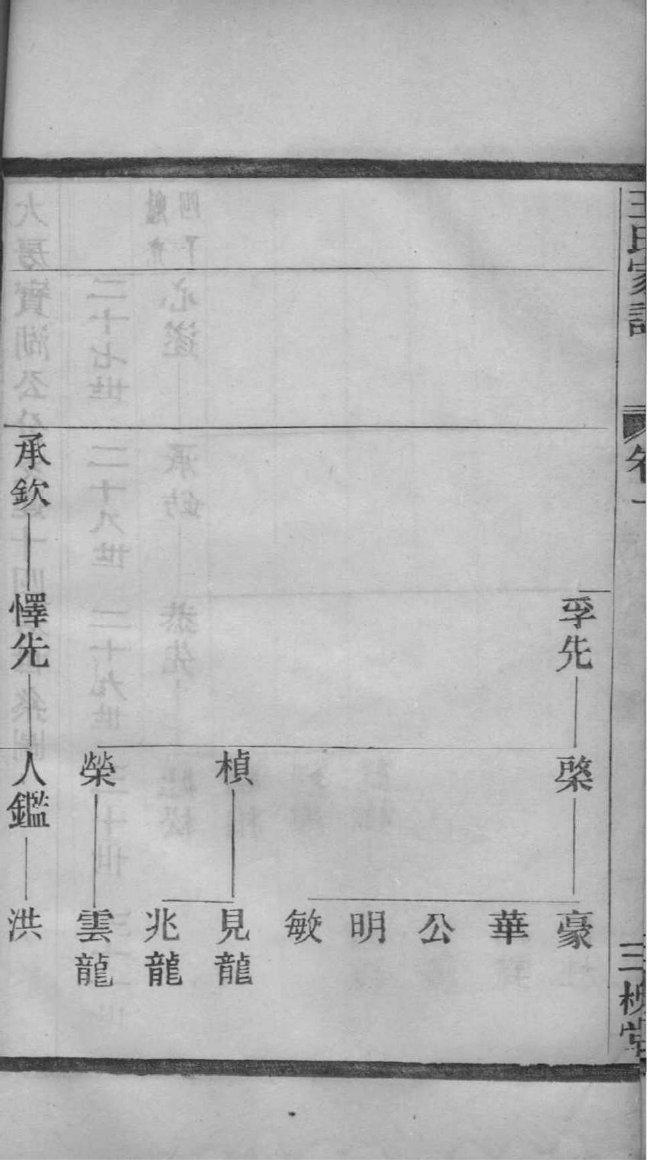 王氏家譜
卷一
三槐堂
孚先
棨
豪
華
公
明
敏
楨
見龍
兆龍
榮
雲龍
承欽
懌先
人鑑
洪